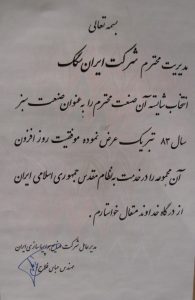 بسمه تعالی
مدیریت محترم شرکت ایران تک
انتخاب شایسته آن صنعت محترم را به عنوان صنعت سبز
سال ۸۲ تبریک عرض نموده موفقیت روز افزون
آن مجموعه را در خدمت به نظام مقدس جمهوری اسلامی ایران
از درگاه خداوند متعال خواستارم.
مدیرعامل شرکت صنایع هواپیماسازی ایران
مهندس عباس